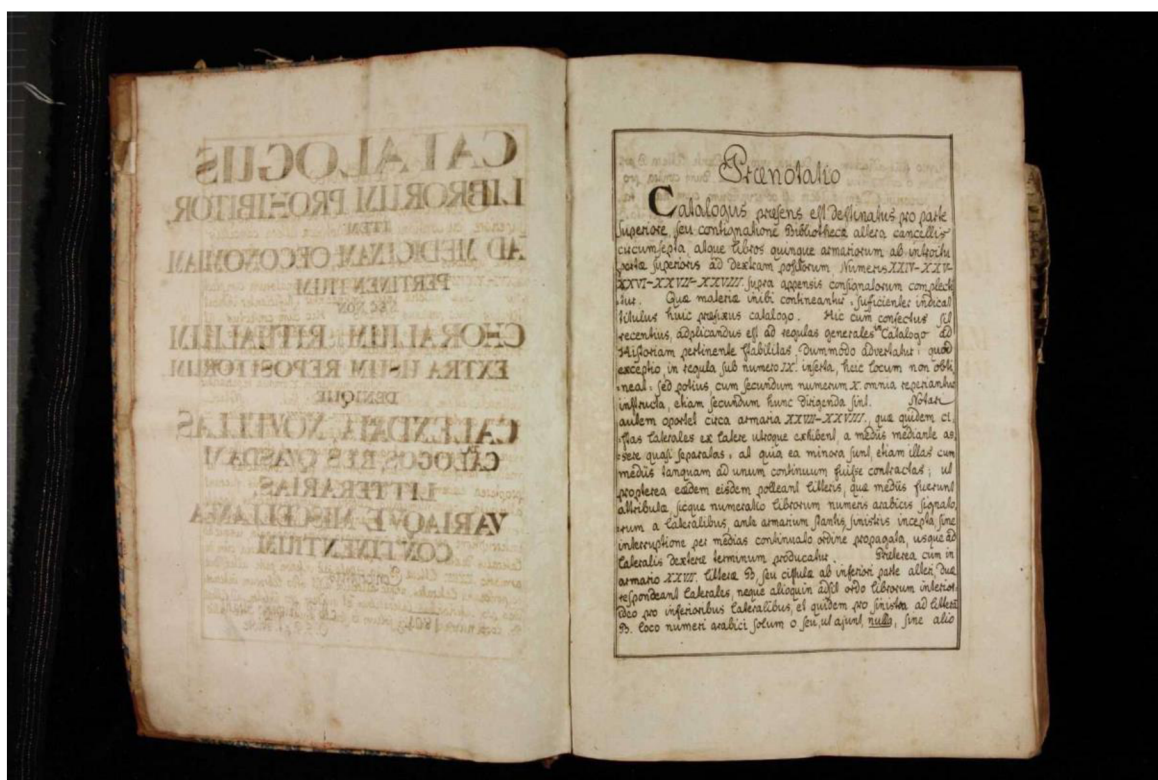 CATALOGUS
LIBRORUM PROHIBITOR,
ITEM
AD MEDICINAM OECONOMIAM
PERTINENTIUM
NEC NON
CHORALIUM, RITUALIUM
EXTRA USUM REPOSITORUM
DENIQUE
CALENDARIA, NOVELLAS
CATALOGOS, RES QVASDAM
LITTERARIAS,
VARIAQVE MISCELLANEA
CONTINENTIUM
Prænotatio
Catalogus presens est destinatus pro parte
superiore, seu contignatione Bibliothecæ altera cancellis
circumsepta, atque libros quinque armariorum ab introitu
portæ superioris ad dextram positorum, Numeris XXIV-XXV-
XXVI-XXVII-XXVIII. supra appensis consignatorum complecti
tur. Quæ materiæ inibi contineantur, sufficienter indicat
titulus huic præfixus catalogo. Hic cum confectus sit
recentius, adplicandus est ad regulas generales in Catalogo ad
Historiam pertinente stabilitas, dummodo advertatur: quod
exceptio, in regula sub numero IX. inserta, heic locum non obti
neat: sed potius, cum secundum numerum X. omnia reperiantur
instructa, etiam secundum hunc dirigenda sint. Notari
autem oportet circa armaria XXVII-XXVIII., quæ quidem ci
stas laterales ex latere utroque exhibent, a mediis mediante as
sere quasi separatas, at quia ea minora sunt, etiam illas cum
mediis tanquam ad unum continuum fuisse contractas; ut
propterea eædem eisdem polleant litteris, quæ mediis fuerunt
attributa, sicque numeratio librorum numeris arabicis signato,
rum a lateralibus, ante armarium stantis, sinistris incepta, sine
interruptione per medias continuato ordine propagata, usque ad
lateralis dexteræ terminum producatur. Præterea cum in
armario XXVII. litteræ B, seu cistulæ ab inferiori parte alteri, duæ
respondeant laterales, neque alioquin adsit ordo librorum interior
ideo pro inferioribus lateralibus, et quidem pro sinistra ad litteram
B. loco numeri arabici solum o seu, ut ajunt, nulla, sine alio